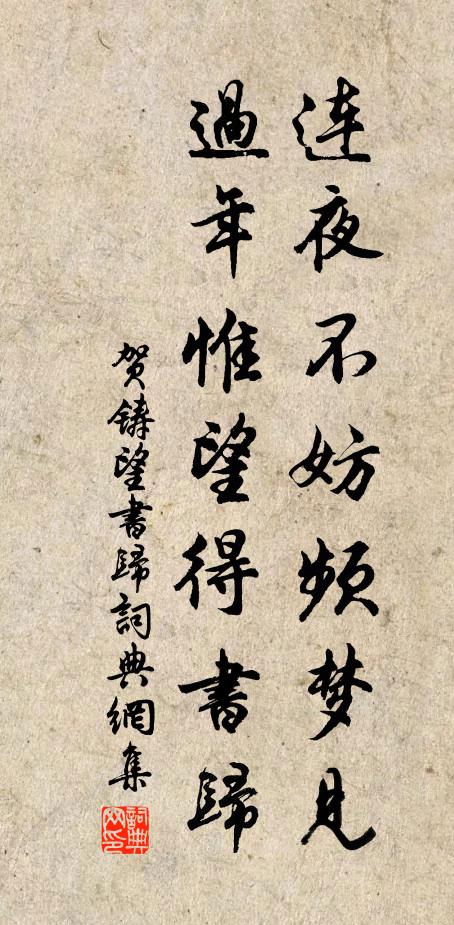 连夜不妨频梦见
過年惟望得書歸
贺铸望書歸詞典網集
詞典网印